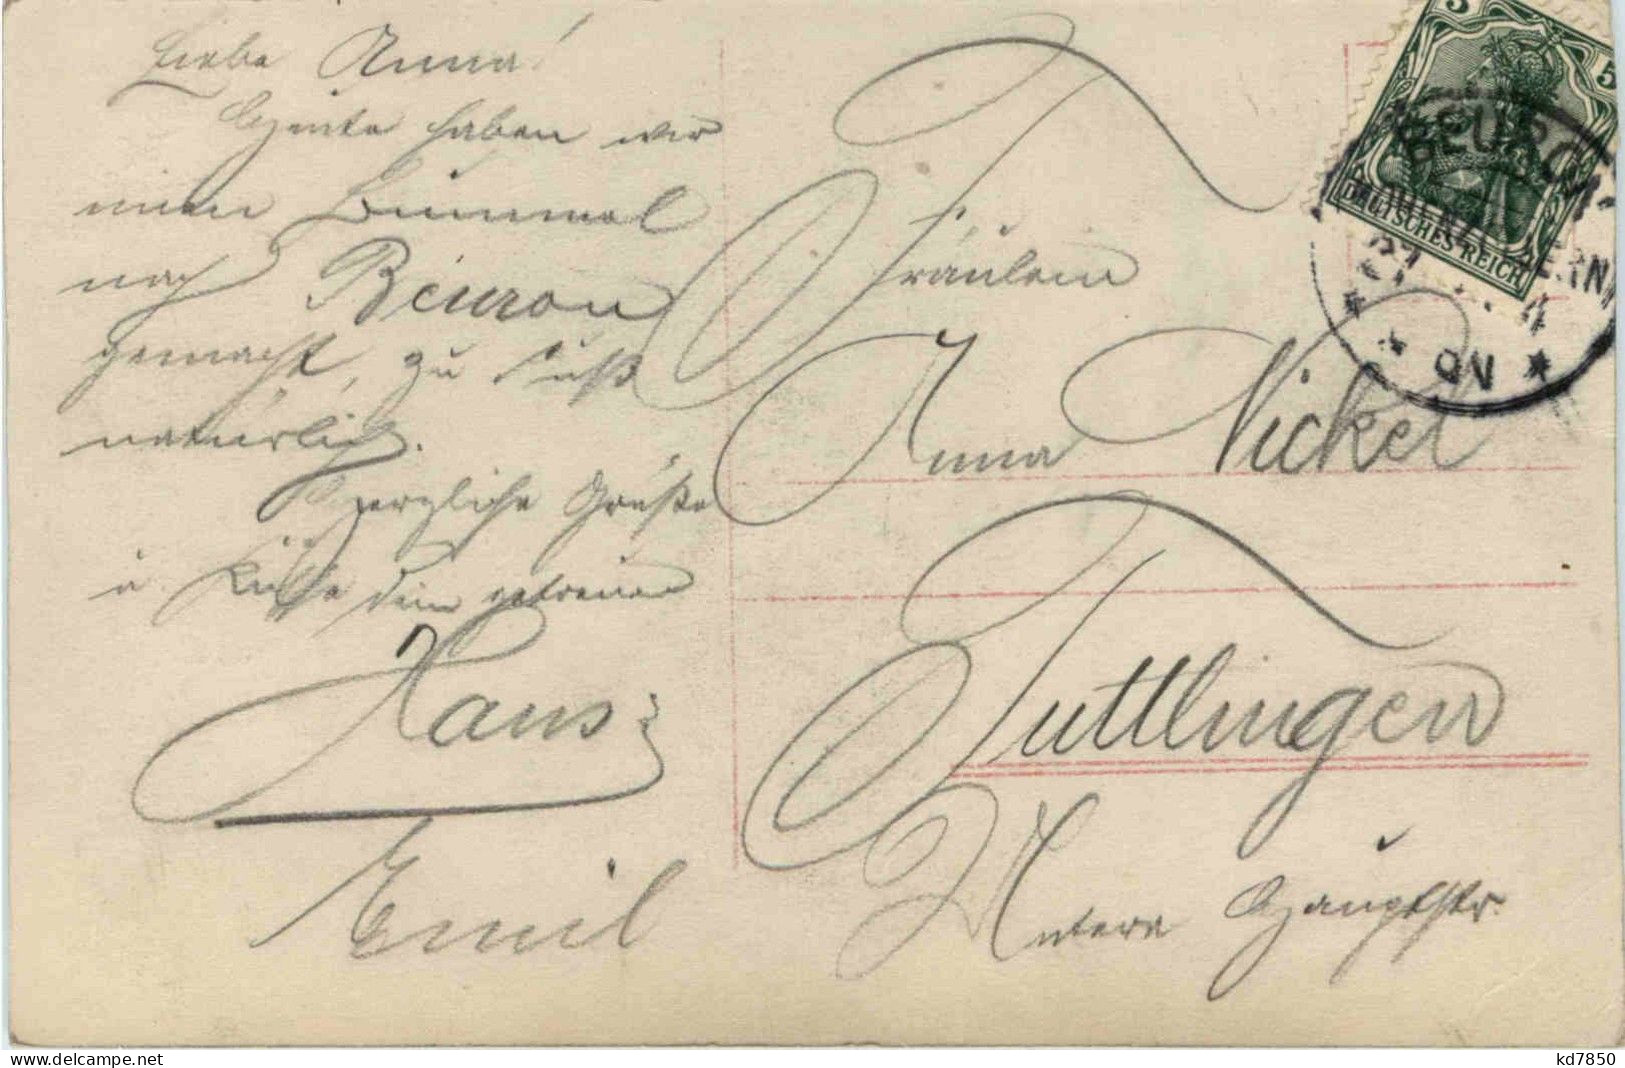 Liebe Anna!
Heute haben wir
einen Bummel
nach Beuron
gemacht, zu Fuß
natürlich.
Herzliche Grüße
u. Küsse dein getreuer
Hans
Emil
Fräulein
Anna Nickel
Tuttlingen
Untere Hauptstr.
5 5
DEUTSCHES REICH
BEURON
kd7850